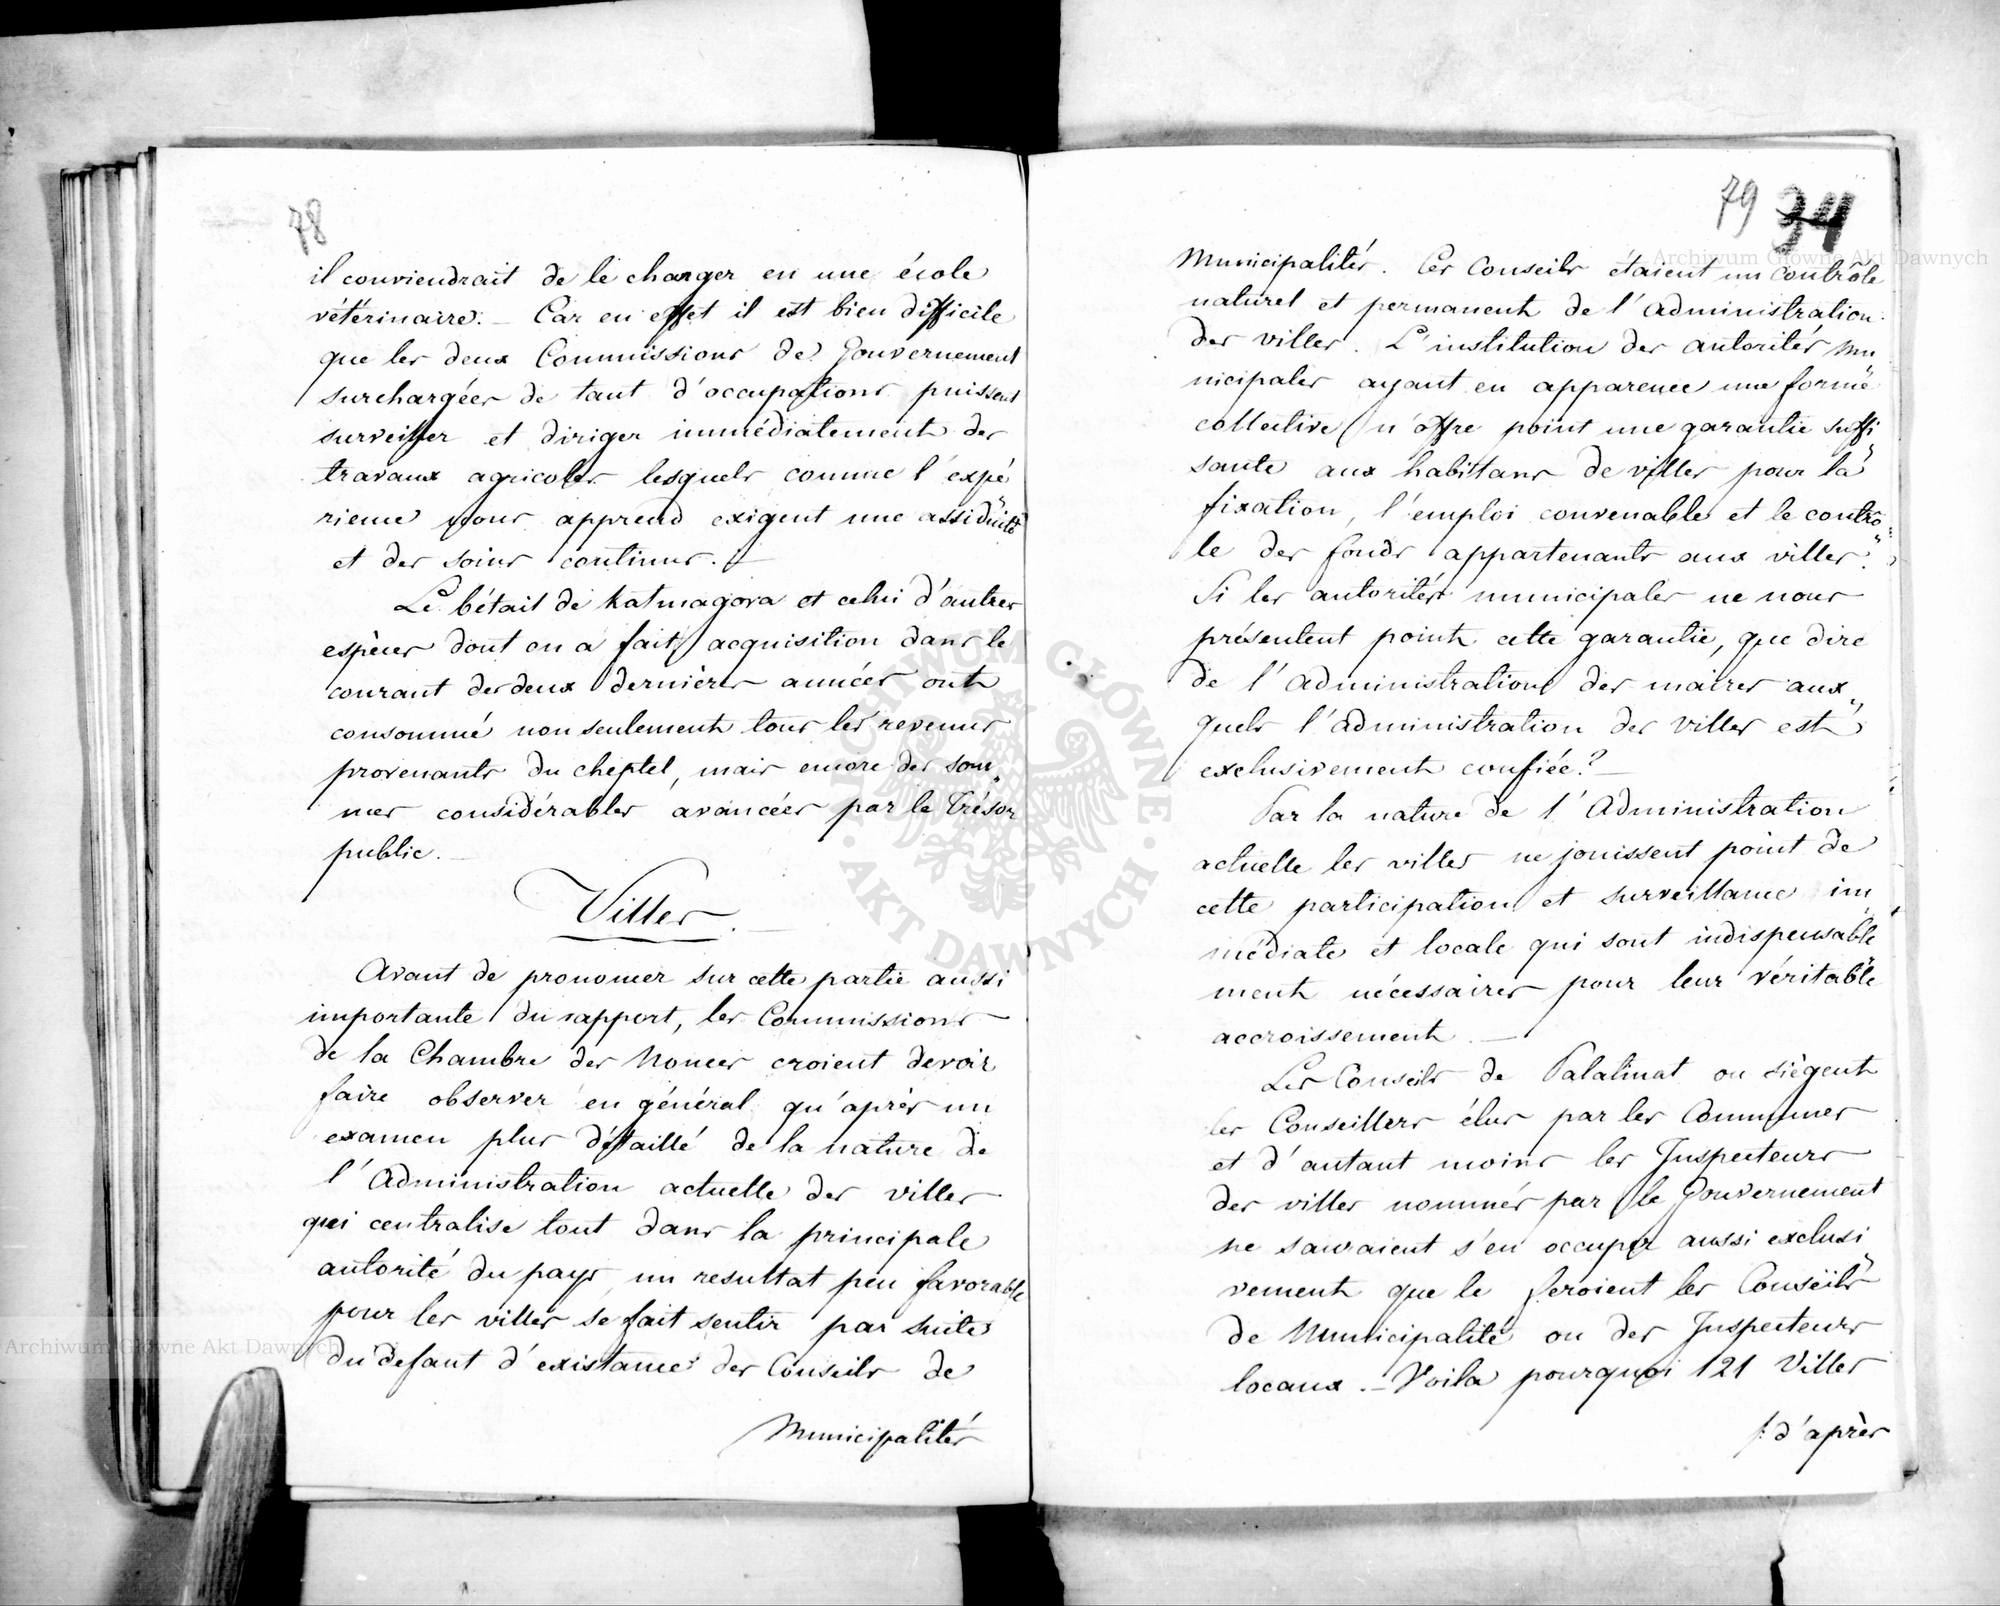 78
il conviendrait de le changer en une école
vétérinaire. — Car en effet il est bien difficile
que les deux Commissions de Gouvernement
surchargées de tant d'occupations puissent
surveiller et diriger immédiatement des
travaux agricoles lesquels comme l'expé
rience nous apprend exigent une assiduité
et des soins continus. —
Le bétail de Katmagora et celui d'autres
espèces dont on a fait acquisition dans le
courant des deux dernières années ont
consommé non seulement tous les revenus
provenants du cheptel, mais encore des som„
mes considérables avancées par le Trésor
public. —
Villes. —
Avant de prononcer sur cette partie aussi
importante du rapport, les Commissions
de la Chambre des Nonces croient devoir
faire observer en général qu'après un
examen plus détaillé de la nature de
l'Administration actuelle des villes
qui centralise tout dans la principale
autorité du pays un resultat peu favorable
pour les villes se fait sentir par suite
du defaut d'existance des Conseils de
Municipalités
79 34
Municipalités. Ces Conseils étaient un contrôle
naturel et permanent de l'administration
des villes. L'institution des autorités mu„
nicipales ayant en apparence une forme
collective n'offre point une garantie suffi„
sante aux habitans de villes pour la
fixation, l'emploi convenable et le contrô„
le des fonds appartenants aux villes.
Si les autorités municipales ne nous
présentent point cette garantie, que dire
de l'administration des maires aux„
quels l'administration des villes est
exclusivement confiée? —
Par la nature de l'Administration
actuelle les villes ne jouissent point de
cette participation et surveillance im„
médiate et locale qui sont indispensable„
ment nécessaires pour leur véritable
accroissement. —
Les Conseils de Palatinat ou siègent
les Conseillers élus par les Communes
et d'autant moins les Inspecteurs
des villes nommés par le Gouvernement
ne sauraient s'en occuper aussi exclusi„
vement que le feroient les Conseils
de Municipalité ou des Inspecteurs
locaux. — Voila pourquoi 121 Villes
/: d'après
Archiwum Główne Akt Dawnych
Archiwum Główne Akt Dawnych
ARCHIWUM GŁÓWNE · AKT DAWNYCH ·